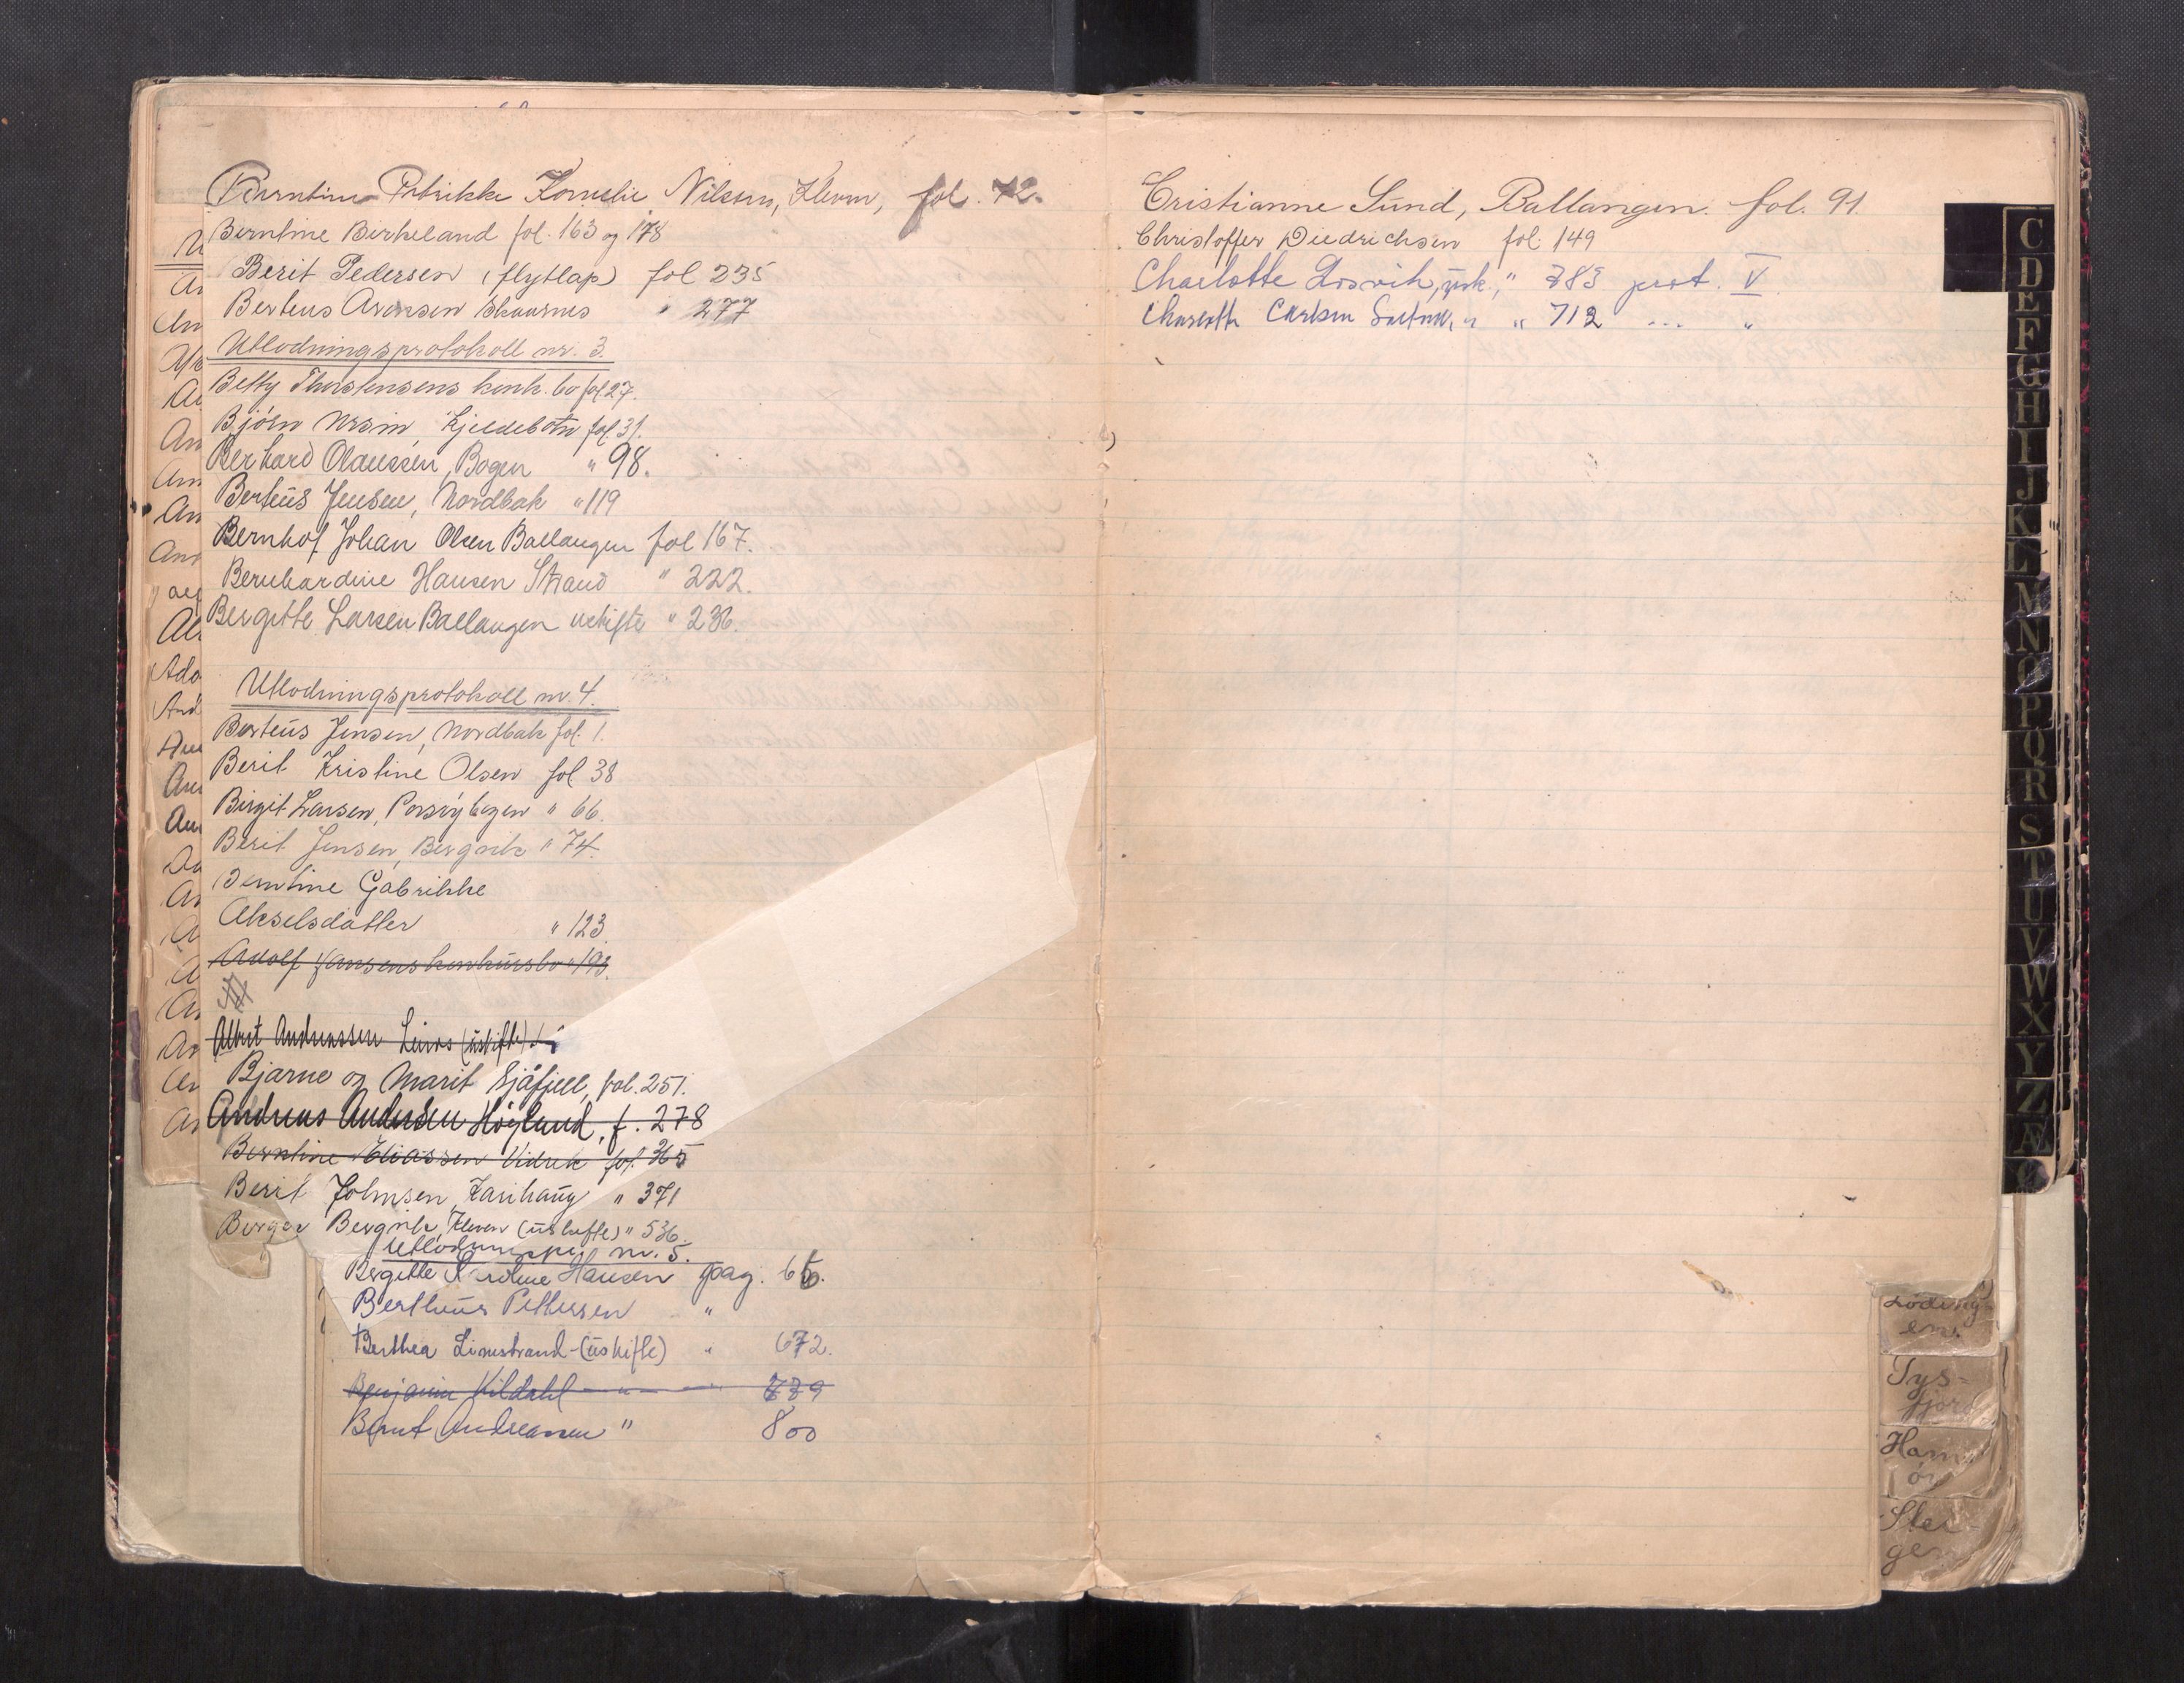 Berntine Petrikke Kornelie Nilsen, Kleven, fol. 72.
Berntine Birkeland fol. 163 og 178
Berit Pedersen (flytlap) fol 235
Berteus Aronsen Skaarnes " 277
Utlodningsprotokoll nr. 3.
Betty Thorstensens konk. bo fol 27.
Bjørn Kjeldebotn fol 31.
Berhard Olaussen, Bogen " 98.
Berteus Jensen, Nordbak " 119
Bernhof Johan Olsen Ballangen fol 167.
Bernhardine Hansen Strand " 222.
Bergitte Larsen Ballangen uskifte " 236.
Utlodningsprotokoll nr. 4.
Berteus Jensen, Nordbak fol. 1.
Berit Kristine Olsen fol 38
Birgit Larsen, " 66.
Berit Jensen, Bergvik " 74.
Berntine Gabrikke
Akselsdatter " 123.
Adolf Jansens konkursbo " 198.
Albert Andreassen Leiros (uskifte)
Bjarne og Marit Sjåfjell, fol. 251.
Andreas Andersen Høgland, f. 278
Berntine Eliassen Vidrek fol. 365
Berit Johnsen, Karihaug " 371
Berger Bergvik, Kleven (uskifte) " 536.
Utlodningspr. nr. 5.
Bergitte Karoline Hansen pag. 66.
Bertheus Pettersen "
Berthea Limstrand (uskifte) " 672.
Benjamin Kildahl " 779
Bernt Andreassen " 800
Cristianne Sund, Ballangen. fol. 91.
Christoffer Diedrichsen fol. 149
Charlotte Losvik, usk., " 383 prot. V
Carlsen " " 712 ... "
C
D
E
F
G
H
I
J
K
L
M
N
O
P
Q
R
S
T
U
V
W
X
Y
Z
Æ
Ø
Löding-
en.
Tys-
fjord
Ham-
ör
Stei-
gen